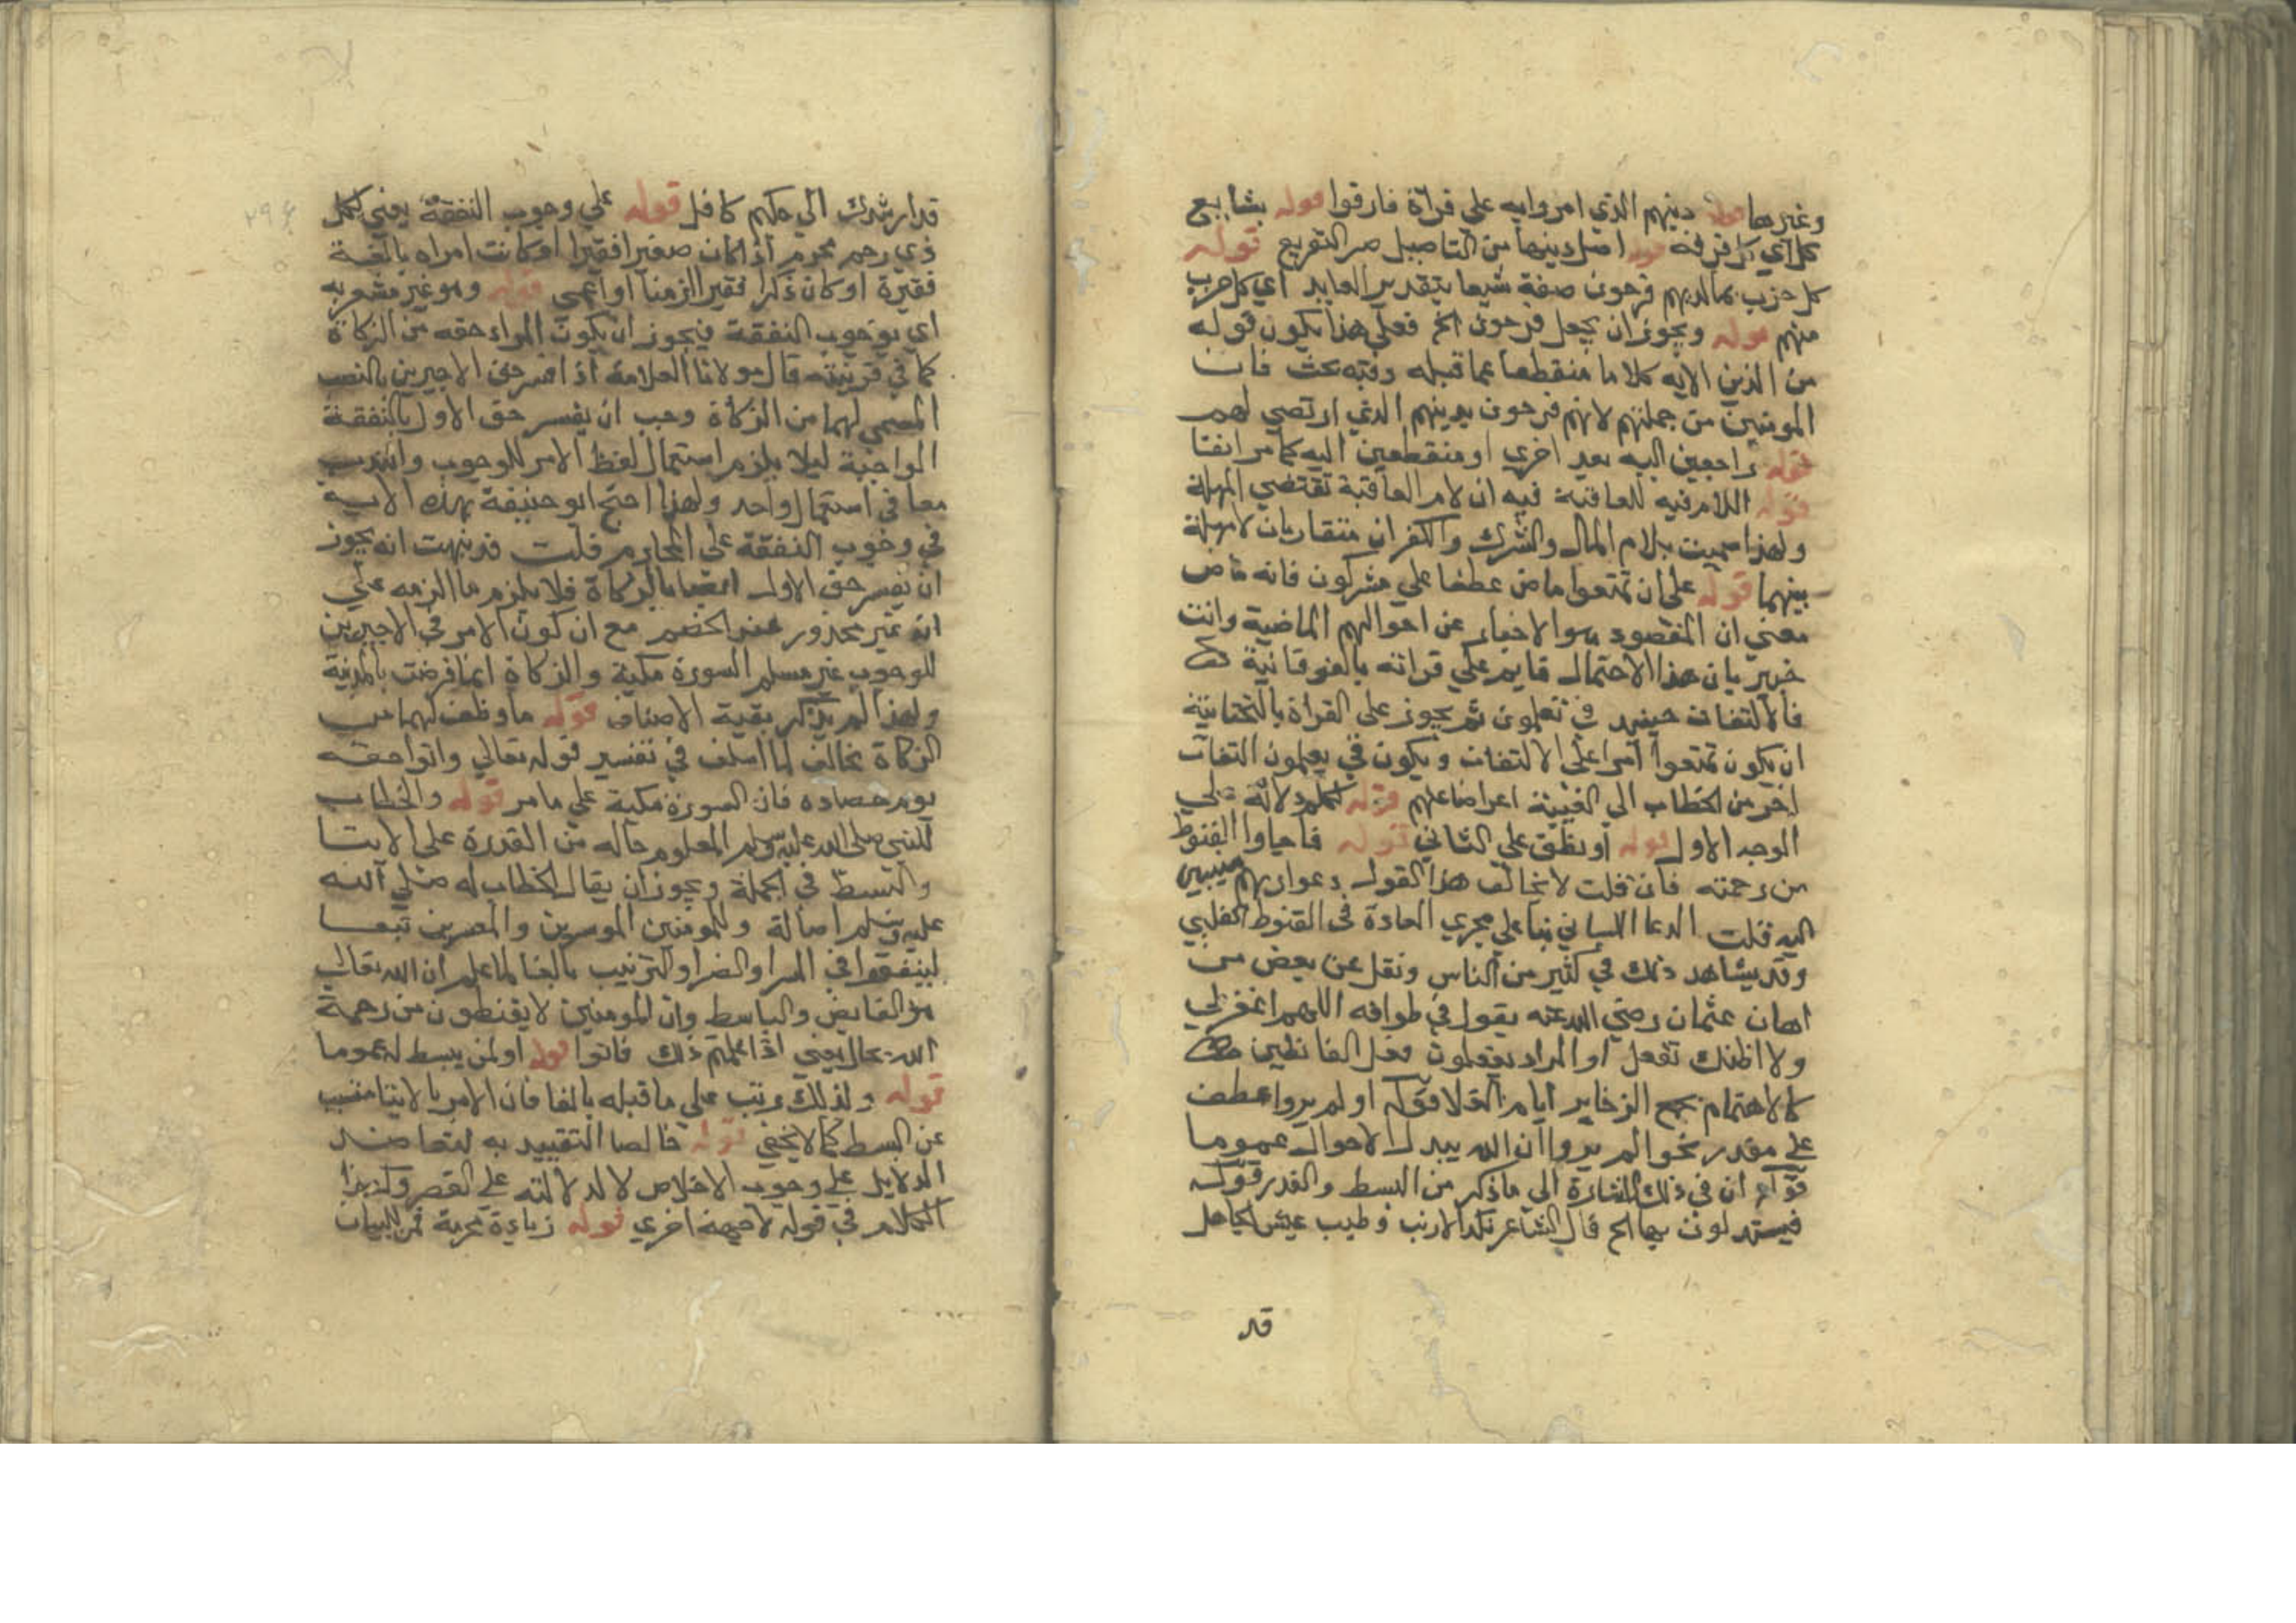 وغيرها قوله دينهم الذي امروا به علي قراة فارقوا قوله يشايع
كل اي كل فرقة قوله اصل دينها من التاصيل ضد التفريع قوله
كل حزب بما لديهم فرحون صفة شيعا بتقدير العايد اي كل حزب
منهم قوله ويجوز ان يجعل فرحون الخ فعلي هذا يكون قوله
من الذين الايه كلاما منقطعا عما قبله وفيه بحث فان
المومنين من جملتهم لانهم فرحون بدينهم الذي ارتضي لهم
قوله راجعين اليه بعد اخري او منقطعين اليه كما مر انفا
قوله اللام فيه للعاقبة فيه ان لام العاقبة تقتضي المهلة
ولهذا سميت بلام المال والشرك والكفران متقاربان لا مهلة
بينهما قوله علي ان تمتعوا ماض عطفا علي مشركون فانه ماض
معني ان المقصود هو الاخبار عن احوالهم الماضية وانت
خبير بان هذا الاحتمال قايم علي قراته بالفوقانية
فالالتفات حينيد في تعلمون ثم يجوز علي القراة بالتحتانية
ان يكون تمتعوا امرا علي الالتفات ويكون في يعلمون التفات
اخر من الخطاب الي الغيبة اعراضا عنهم قوله تكلم دلالة علي
الوجه الاول قوله او نطق علي الثاني قوله فاجاوا القنوط
من رحمته فان قلت لا يخالف هذا القول دعوا ربهم منيبين
اليه قلت الدعا اللساني بنا علي مجري العادة في القنوط القلبي
وقد يشاهد ذلك في كثير من الناس ونقل عن بعض من
اهان عثمان رضي الله عنه يقول في طوافه اللهم اغفر لي
ولا اظنك تفعل او المراد يفعلون فعل القانطين
كالاهتمام بجمع الذخاير ايام الغلا قوله اولم يروا عطف
علي مقدر نحو الم يروا ان الله يبدل الاحوال عموما
قوله ان في ذلك اشارة الي ما ذكر من البسط والقدر قوله
فيستدلون بها الخ قال الشاعر نكد الاريب وطيب عيش الجاهل
قد
قد ارشدك الي حكم كامل قوله علي وجوب النفقة يعني لكل
ذي رحم محرم اذا كان صغيرا فقيرا او كانت امراه بالغة
فقيرة او كان ذكرا فقيرا زمنا او اعمي قوله وهو غير مشعر به
اي بوجوب النفقة فيجوز ان يكون المراد حقه من الزكاة
كما في قرينته قال مولانا العلامة اذا فسر حق الاخيرين بالنصيب
المسمي لهما من الزكاة وجب ان يفسر حق الاول بالنفقة
الواجبة ليلا يلزم استعمال لفظ الامر للوجوب والندب
معا في استعمال واحد ولهذا احتج ابو حنيفة بهذه الايه
في وجوب النفقة علي المحارم قلت قد نبهت انه يجوز
ان يفسر حق الاول ايضا بالزكاة فلا يلزم ما الزمه علي
انه غير محذور عند الخصم مع ان كون الامر في الاخيرين
للوجوب غير مسلم السورة مكية والزكاة انما فرضت بالمدينة
ولهذا لم يذكر بقية الاصناف قوله ما وظف لهما من
الزكاة يخالف لما اسلف في تفسير قوله تعالي واتوا حقه
يوم حصاده فان السورة مكية علي ما مر قوله والخطاب
للنبي صلي الله عليه وسلم المعلوم حاله من القدرة علي الايتا
والبسط في الجملة ويجوز ان يقال الخطاب له صلي الله
عليه وسلم اصالة وللمومنين الموسرين والمعسرين تبعا
لينفقوا في السرا والضرا والترتيب بالفا لما علم ان الله تعالي
هو القابض والباسط وان المومنين لا يقنطون من رحمة
الله بحال يعني اذا علمتم ذلك فاتوا قوله او لمن يبسط له عموما
قوله ولذلك رتب علي ما قبله بالفا فان الامر بالايتا متسبب
عن البسط كما لا يخفي قوله خالصا التقييد به لتعاضد
الدلايل علي وجوب الاخلاص لا لدلالته علي القصر وكذا
الكلام في قوله لا جهة اخري قوله زيادة محرمة فمن للبيان